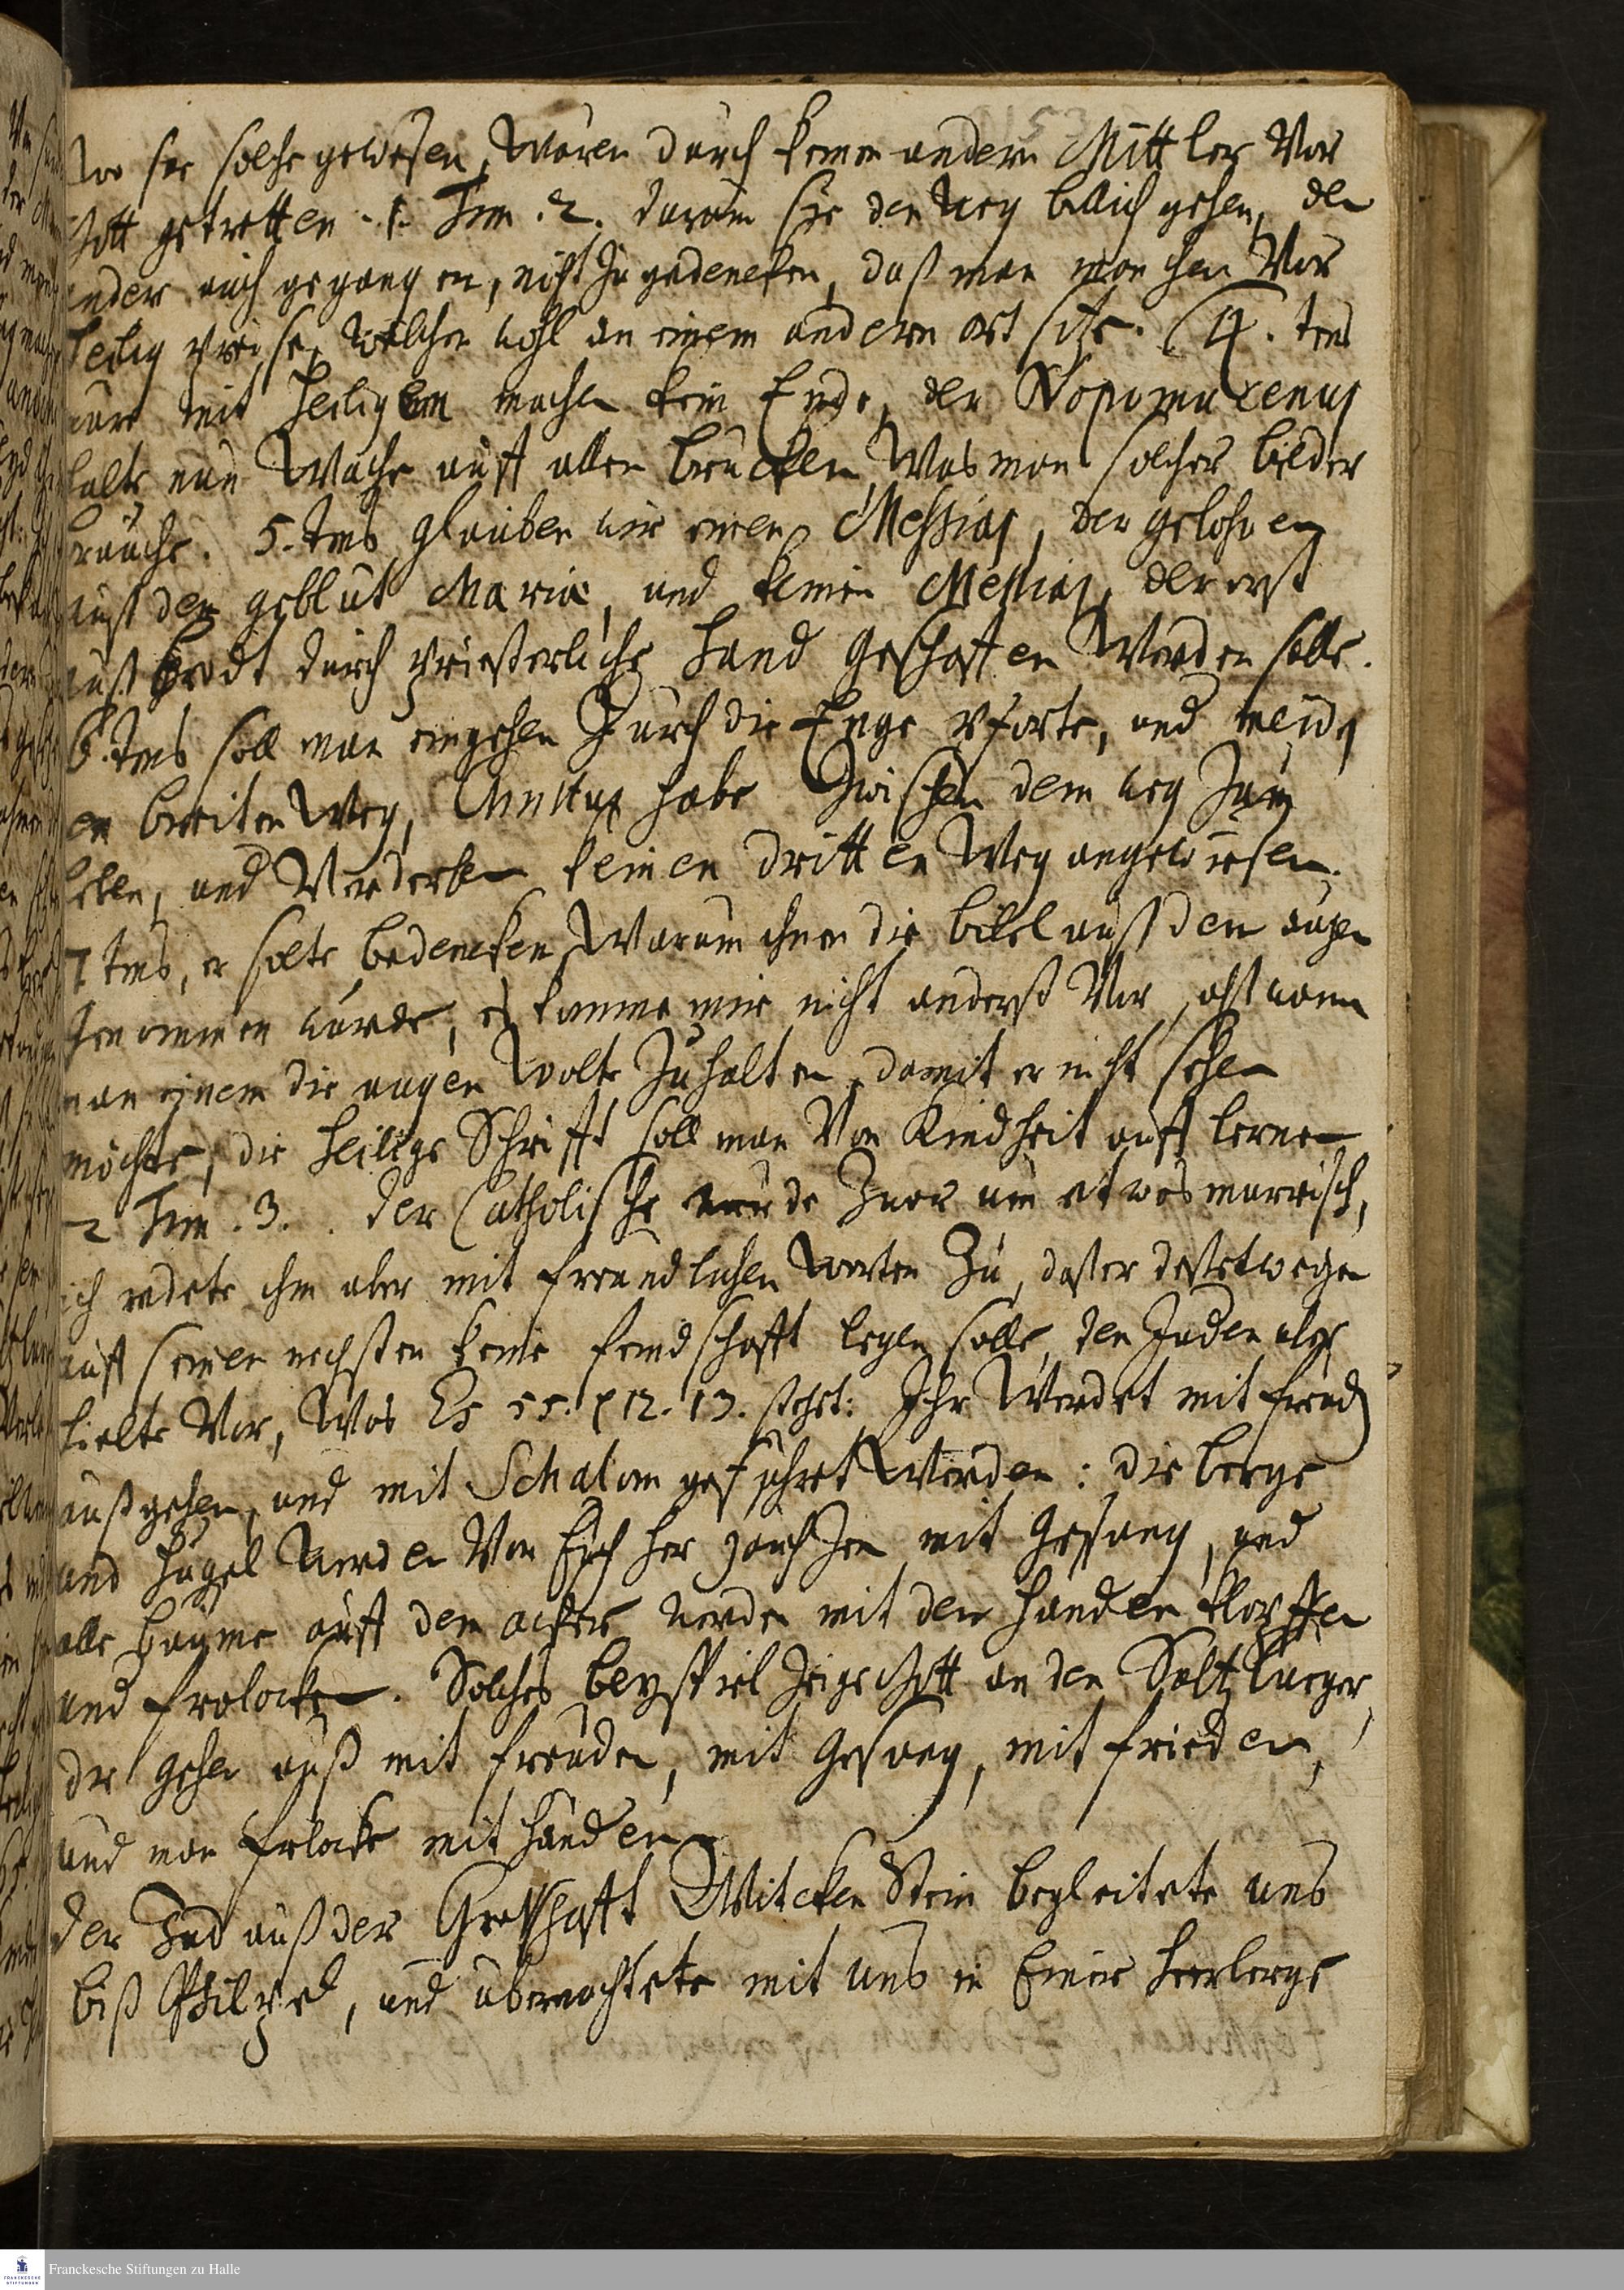 wo sie solche gewesen, wären durch keinen andern Mittler Vor
Gott getretten. 1. Tim. 2. darum sie den weg billich gehen, den
ander auch gegangen, nicht zu gedencken, daß man manchen Vor
heilig preise, welcher wohl an einem andern ort sitze. 4. tens
mit heiligen machen kein Ende, der Nopomucenus
halte nun Wache auff allen brucken, Was man solcher bilder
brauche. 5. tens glauben wir einen Messias, der gebohren
auß dem geblüt Mariæ, und keinen Messias, der erst
auß brodt durch priesterliche hand geschaffen Werden solle.
6. tens soll man eingehen durch die Enge pforte, und meide
den breiten Weg, Christus habe Zwischen dem weg zum
leben, und Verderben keinen dritten Weg angewiesen.
7 tens, er solte bedencken Warum ihnen die bibel auß den augen
genommen würde, es komme mir nicht anderst Vor, alß wann
man einem die augen wolte Zuhalten, damit er nicht sehen
möchte, die heilige Schrifft soll man Von Kindheit auff lernen
2 Tim. 3. der Catholische wurde Zwar um etwas murrisch,
ich redete ihm aber mit freundlichen worten Zu, daß er deßetwegen
auff seinen nechsten keine feindschafft legen solle, den Juden aber
hielte Vor, Was Es 55. p 12. 13. stehet: Ihr Werdet mit freuden
außgehen, und mit Schalom geführet Werden: die berge
und hügel werden Von Euch her jauchzen mit gesang, und
alle bäume auff dem acker werden mit den handen klopffen
und frolocken. Solches beyspiel zeige Gott an den Saltzburger,
die gehen auß mit freuden, mit gesang, mit frieden,
und man frlocke mit händen.
der Jud auß der Graffschafft Witckenstein begleitete uns
biß , und übernachtete mit uns in Einer heerberge
Franckesche Stiftungen zu Halle